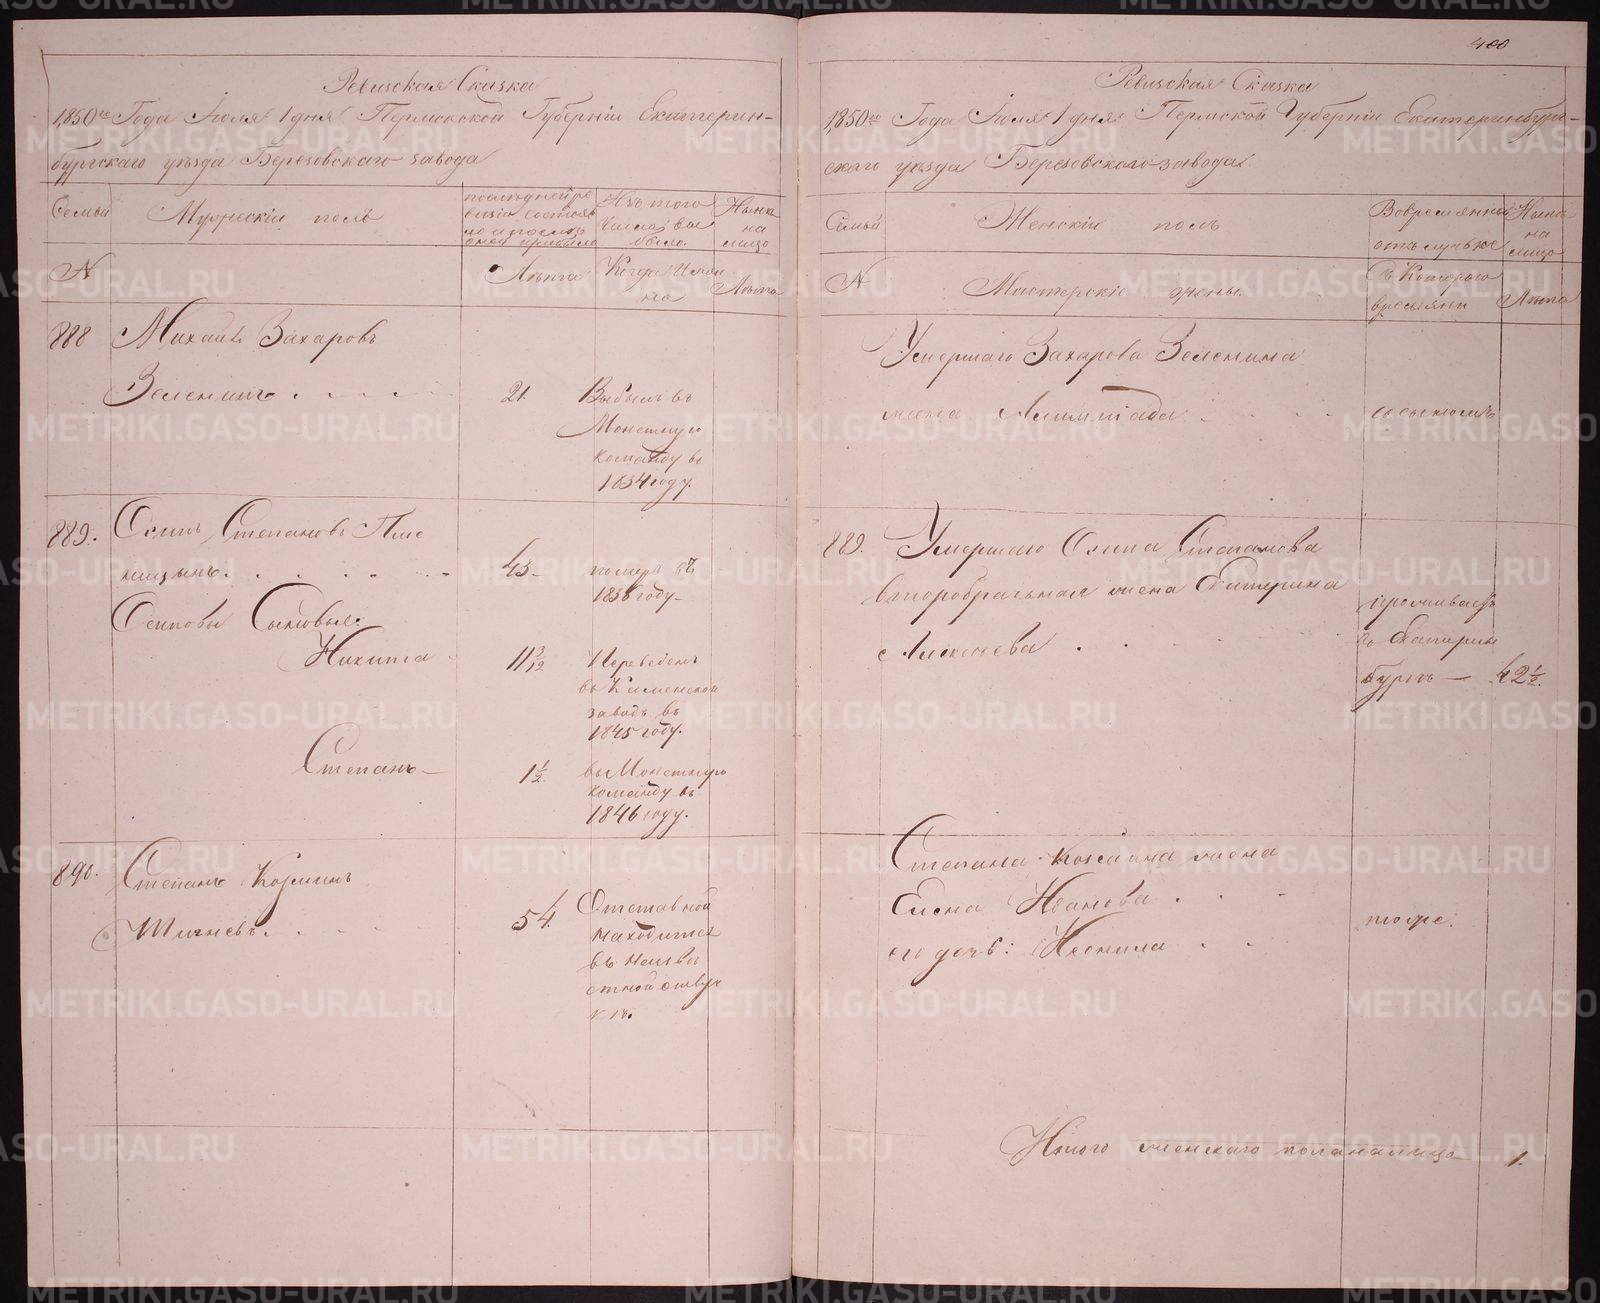 400
Ревизская Сказка
1850го Года Июля 1 дня Пермской Губернiи Екатерин-
бургскаго уезда Березовскаго завода
Семьи
Мужескiй полъ
последней ре
визiи состоя
ло и после
оной прибыло
Изъ того
числа вы
было.
Ныне
на
лицо
N
Лѣта
Когда имян
но
Лѣта
888 Михаилъ Захаровъ
Зеленинъ . . . . 21. Выбылъ въ
Монетную
команду въ
1834 году.
889. Осипъ Степановъ
45 померъ въ
1838 году
Осиповы Сыновья:
Никита 11 9/12 Переведенъ
въ Каменской
заводъ въ
1845 году.
Степанъ 1 1/2 въ Монетную
команду въ
1846 году.
890. Степанъ Козминъ
54. Отставной
находится
въ неизве
стной отлуч
кѣ.
Ревизская Сказка
1850го Года Июля 1 дня Пермской Губернiи Екатеринбург-
скаго уезда Березовскаго завода
Семьи
Женскiй полъ
Во временной
отлучке
Ныне
на
лицо
N
Мастерскiе жены.
Съ котораго
времяни
Лѣта
Умершаго Захарова Зеленина
жена Алимпiада
889. Умершаго Осипа Степанова
второбрачная жена Екатерина
Алексеева
проживаетъ
въ Екатерин
бурге — 42 1/2.
Степана Козмина жена
Елена Иванова
тоже.
его дочь: Неонила
Итого женскаго пола налицо 1.
METRIKI.GASO-URAL.RU